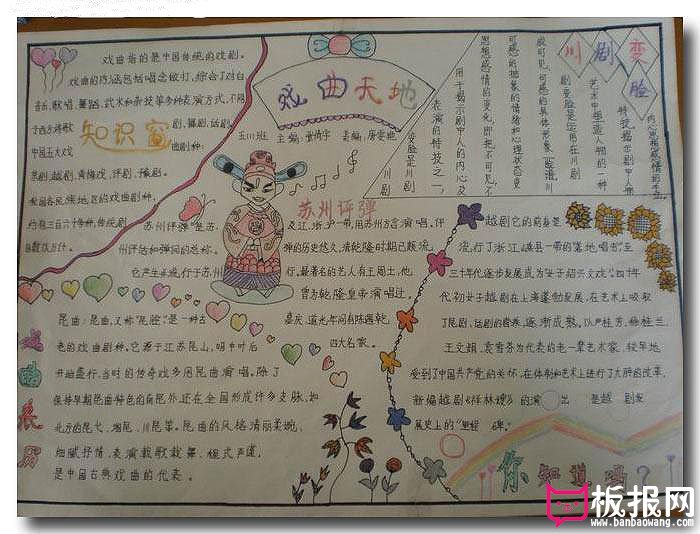 戏曲天地
五(1)班 主编:董倚宇 美编:唐雯艳
戏曲指的是中国传统的戏剧。
戏曲的内涵包括唱念做打,综合了对白
音乐、歌唱、舞蹈、武术和杂技等多种表演方式,不同
于西方将歌剧、舞剧、话剧
知识窗
中国五大戏曲剧种:
京剧、越剧、黄梅戏、评剧、豫剧。
我国各民族地区的戏曲剧种,
约有三百六十多种,传统剧
目数以万计。
川剧变脸
变脸是川剧
表演的特技之一,
用于揭示剧中人的内心及
思想感情的变化,即把不可见、不
可感的抽象的情绪和心理状态变
成可见、可感的具体形象——脸谱。川
剧变脸是运用在川剧
艺术中塑造人物的一种
特技。揭示剧中人物
内心思想感情的
苏州评弹
苏州评弹"是苏
州评话和弹词的总称。
它产生并流行于苏州
及江、浙、沪一带,用苏州方言演唱。评
弹的历史悠久,清乾隆时期已颇流
行。最著名的艺人有王周士,他
曾为乾隆皇帝演唱过。
嘉庆、道光年间有陈遇乾
四大名家。
越剧它的前身是
流行于浙江嵊县一带的"落地唱书"至
三十年代逐步发展成为女子绍兴文戏。四十年
代初女子越剧在上海蓬勃发展,在艺术上吸取
了昆剧、话剧的营养,逐渐成熟。
王文娟、袁雪芬为代表的老一辈艺术家,较早地
受到了中国共产党的关怀,在体制和艺术上进行了大胆的改革,
新编越剧《祥林嫂》的演出 是越剧发
展史上的"里程碑。"
昆曲:昆曲,又称"昆腔"是一种古
老的戏曲剧种。它源于江苏昆山,明中叶后
开始盛行,当时的传奇戏多用昆曲演唱。除了
保持早期昆曲特色的南昆外,还在全国形成许多支脉,如
北方的昆弋、湘昆、川昆等。昆曲的风格清丽柔婉、
细腻抒情,表演载歌载舞、程式严谨,
是中国古典戏曲的代表。
你知道吗?
板报网
www.banbaowang.com